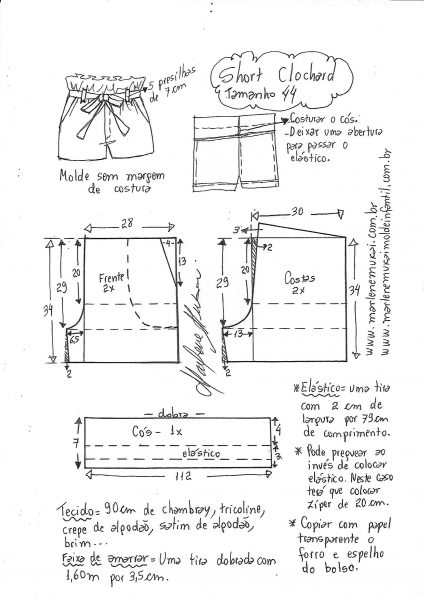 5 presilhas
de 7cm
Short Clochard
Tamanho 44
Molde sem margem
de costura
- Costurar o cós.
- Deixar uma abertura
para passar o
elástico.
28
4
13
20
29
34
Frente
2x
6,5
2
30
3
2
20
29
34
Costas
2x
13
2
Marlene Mukai
www.marlenemukai.com.br
www.marlenemukaimoldeinfantil.com.br
dobra
Cós - 1x
elástico
7
4
112
* Elástico = uma tira
com 2 cm de
largura por 79cm
de comprimento.
* Pode preguear ao
invés de colocar
elástico. Neste caso
terá que colocar
zíper de 20 cm.
* Copiar com papel
transparente o
forro e espelho
do bolso.
Tecido = 90cm de chambray, tricoline,
crepe de algodão, satim de algodão,
brim...
Faixa de amarrar = Uma tira dobrada com
1,60m por 3,5cm.